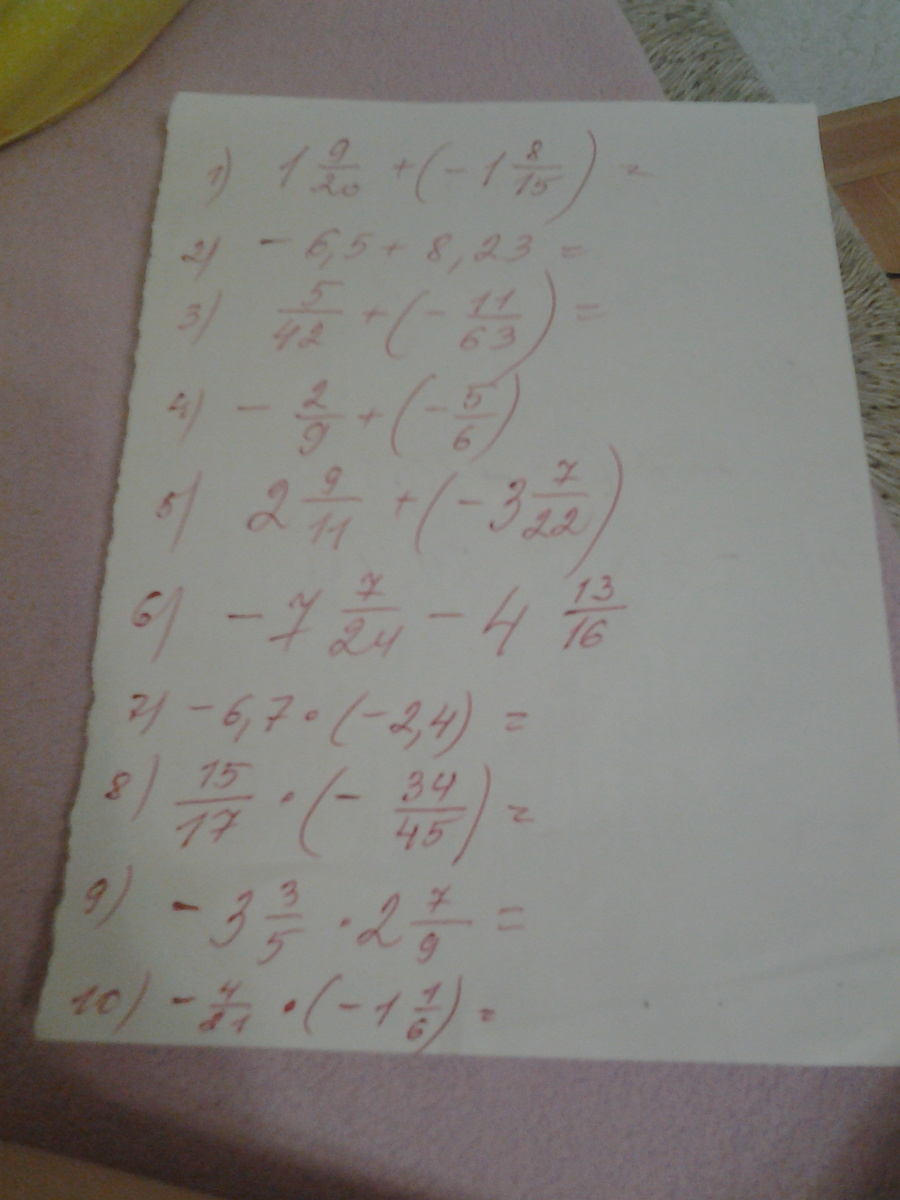 1) 1 9/20 + (- 1 8/15) =
2) - 6,5 + 8,23 =
3) 5/42 + (- 11/63) =
4) - 2/9 + (- 5/6)
5) 2 9/11 + (- 3 7/22)
6) - 7 7/24 - 4 13/16
7) - 6,7 · (- 2,4) =
8) 15/17 · (- 34/45) =
9) - 3 3/5 · 2 7/9 =
10) - 4/21 · (- 1 1/6) =